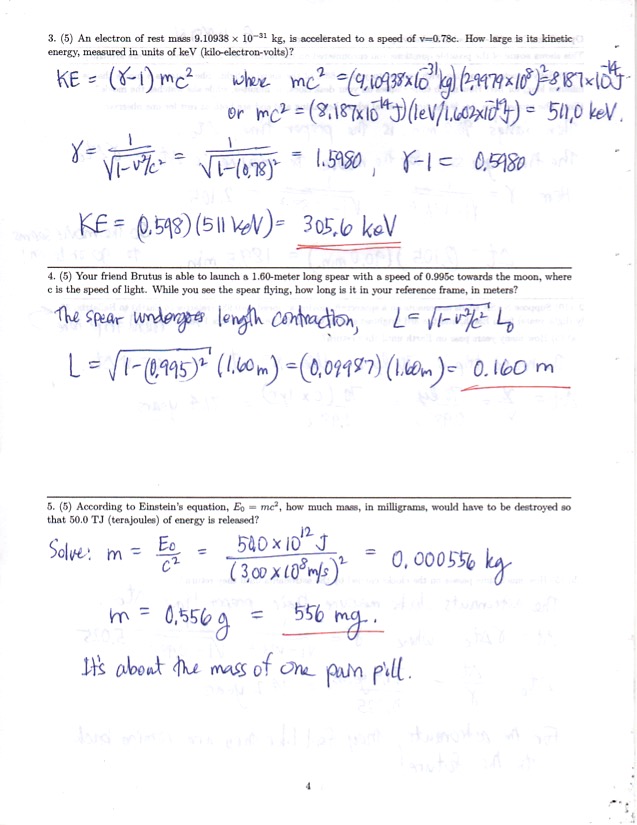 3. (5) An electron of rest mass 9.10938 × 10⁻³¹ kg, is accelerated to a speed of v=0.78c. How large is its kinetic
energy, measured in units of keV (kilo-electron-volts)?
KE = (γ-1) mc² where mc² = (9.10938×10⁻³¹ kg)(2.9979×10⁸)² = 8.187×10⁻¹⁴ J
or mc² = (8.187×10⁻¹⁴ J)(1eV/1.602×10⁻¹⁹ J) = 511.0 keV.
γ = 1/√(1-v²/c²) = 1/√(1-(0.78)²) = 1.5980, γ-1 = 0.5980
KE = (0.598)(511 keV) = 305.6 keV
4. (5) Your friend Brutus is able to launch a 1.60-meter long spear with a speed of 0.995c towards the moon, where
c is the speed of light. While you see the spear flying, how long is it in your reference frame, in meters?
The spear undergoes length contraction, L = √(1-v²/c²) L₀
L = √(1-(0.995)²) (1.60m) = (0.09987)(1.60m) = 0.160 m
5. (5) According to Einstein's equation, E₀ = mc², how much mass, in milligrams, would have to be destroyed so
that 50.0 TJ (terajoules) of energy is released?
Solve: m = E₀/c² = 50.0×10¹² J/(3.00×10⁸ m/s)² = 0.000556 kg
m = 0.556 g = 556 mg.
It's about the mass of one pain pill.
4